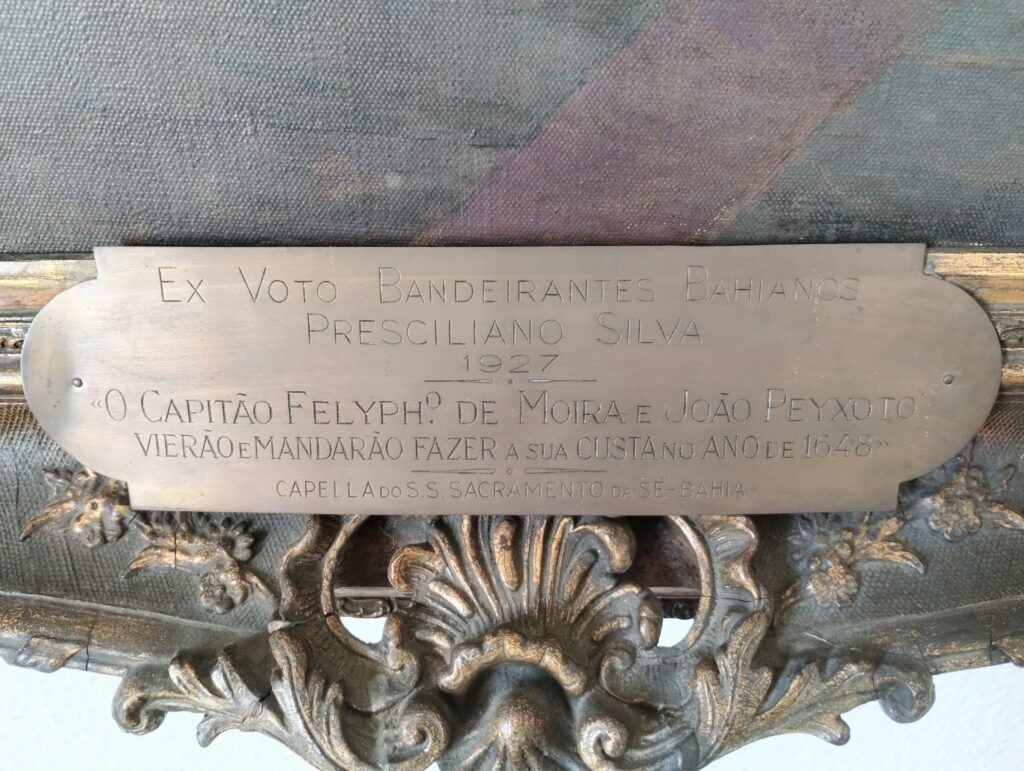 EX VOTO BANDEIRANTES BAHIANOS
PRESCILIANO SILVA
1927
«O CAPITÃO FELYPHº. DE MOIRA E JOÃO PEYXOTO
VIERÃO E MANDARÃO FAZER A SUA CUSTA NO ANO DE 1648»
CAPELLA DO S.S. SACRAMENTO DA SÉ-BAHIA